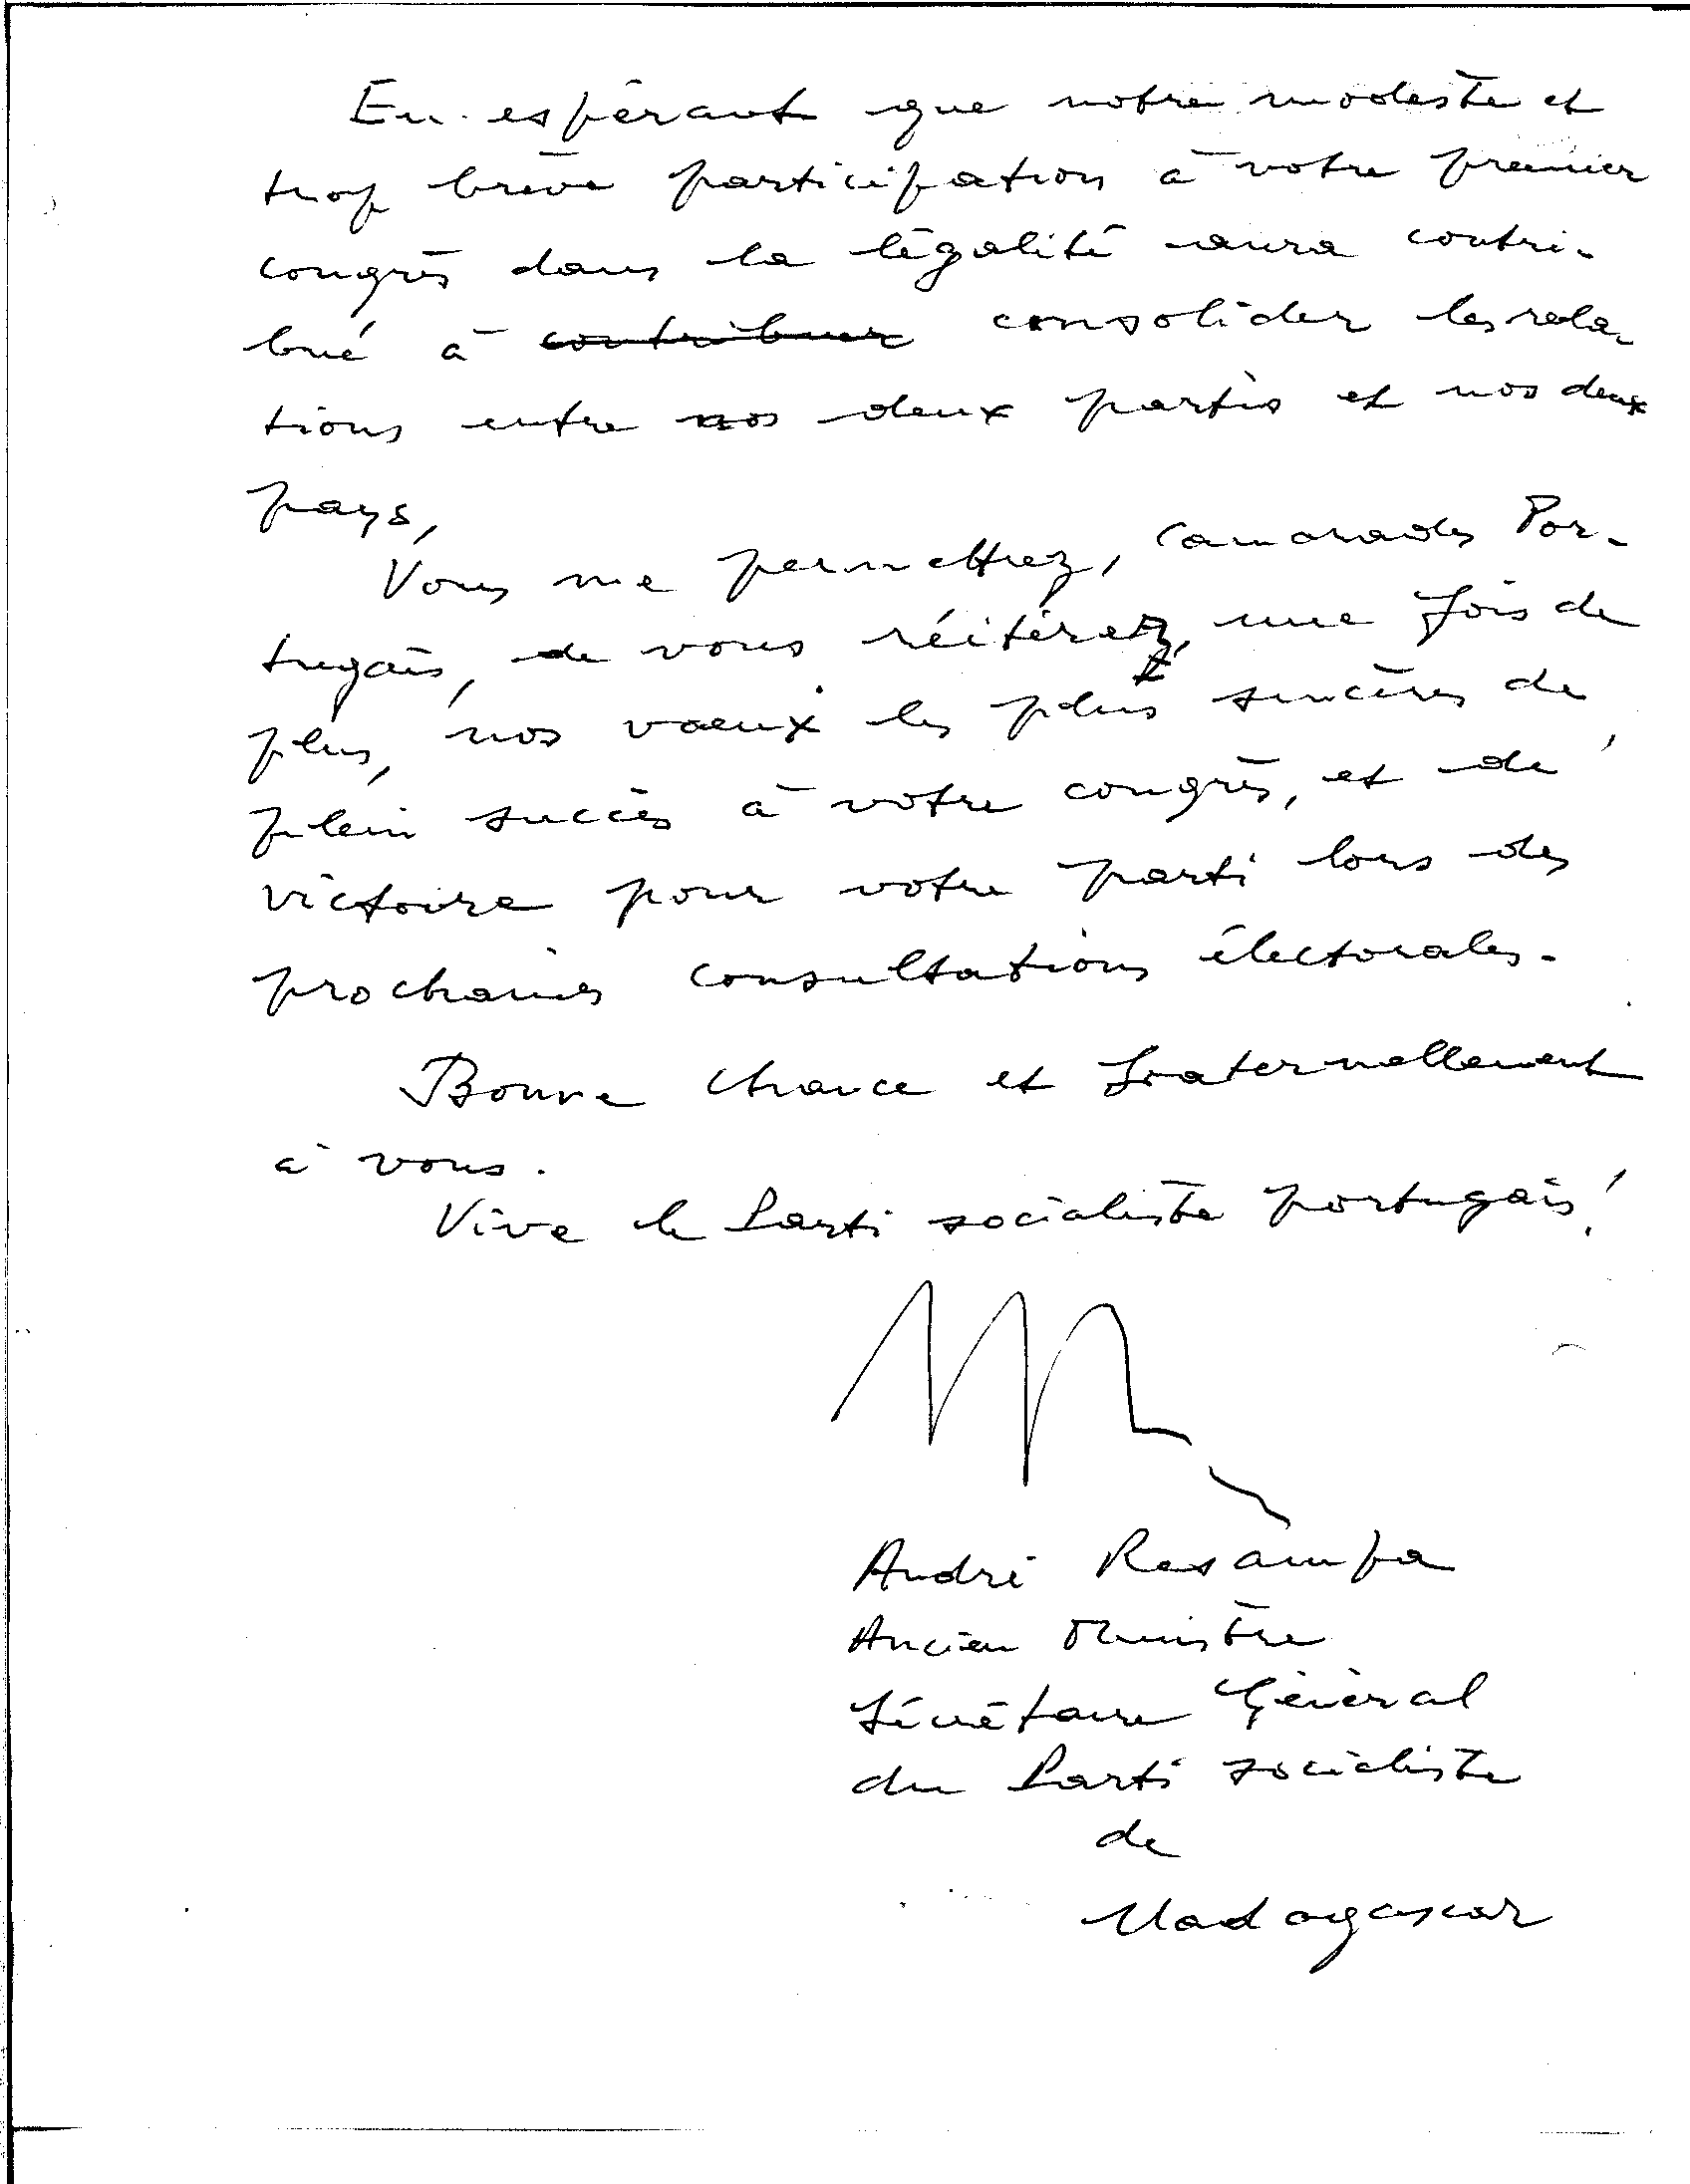 En espérant que notre modeste et
trop brève participation à votre premier
congrès dans la légalité aura contri-
bué à contribuer consolider les rela-
tions entre nos deux partis et nos deux
pays,
Vous me permettrez, camarades Por-
tugais, de vous réitérer, une fois de
plus, nos vœux les plus sincères de
plein succès à votre congrès, et de
victoire pour votre parti lors des
prochaines consultations électorales.
Bonne chance et fraternellement
à vous.
Vive le Parti socialiste portugais!
André Resampa
Ancien Ministre
Sécrétaire Général
du Parti socialiste
de
Madagascar